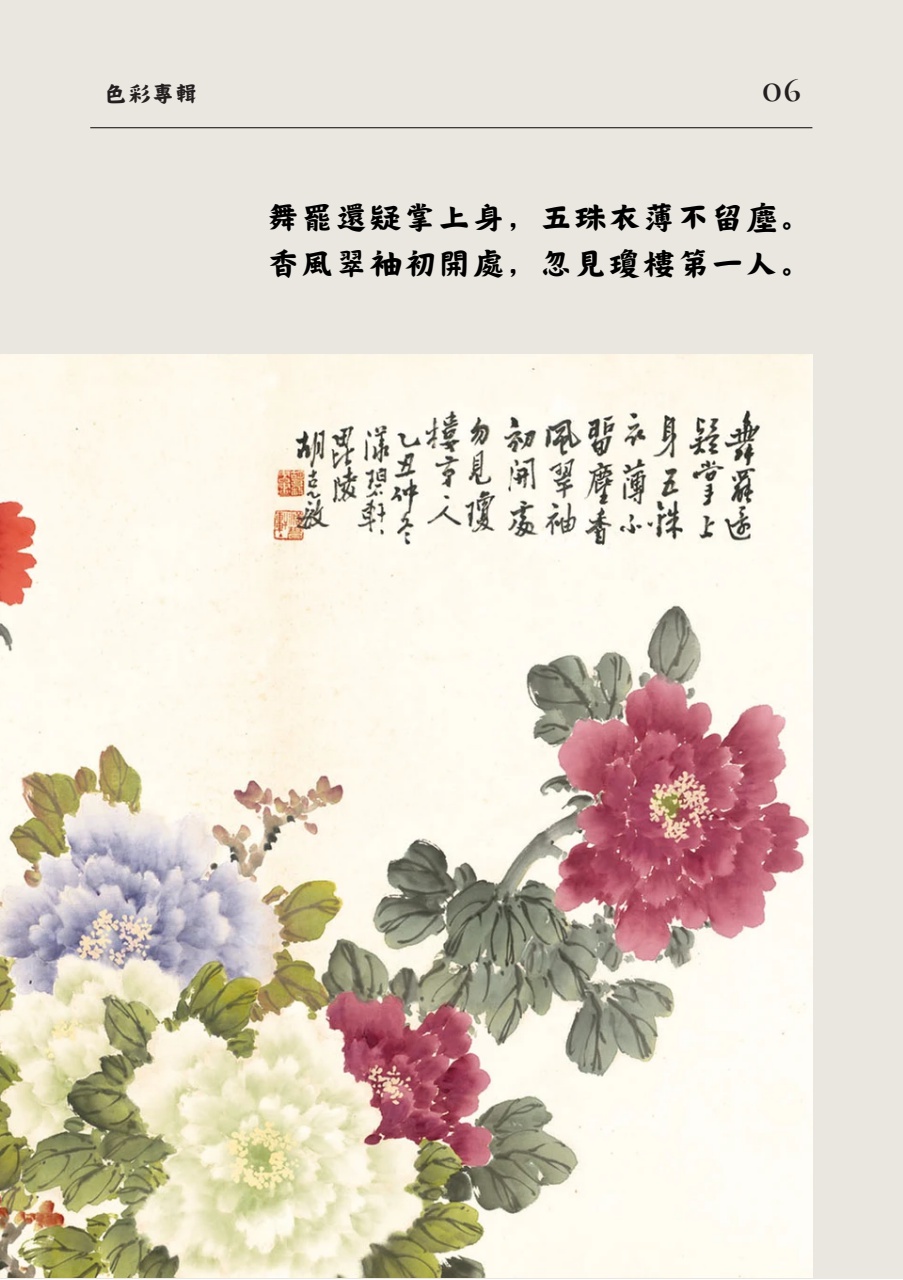 色彩專輯
06
舞罷還疑掌上身，五珠衣薄不留塵。
香風翠袖初開處，忽見瓊樓第一人。
舞罷還
疑掌上
身五銖
衣薄不
留塵香
風翠袖
初開處
勿見瓊
樓第一人
乙丑仲冬
漾碧軒
毘陵
胡志敏